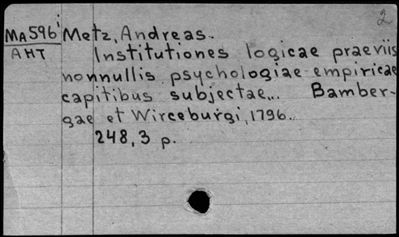 2
MA596i Metz, Andreas.
AHT Institutiones logicae praeviis
nonnullis psychologiae empiricae
capitibus subjectae... Bamber-
gae et Wirceburgi, 1796.
248, 3 p.